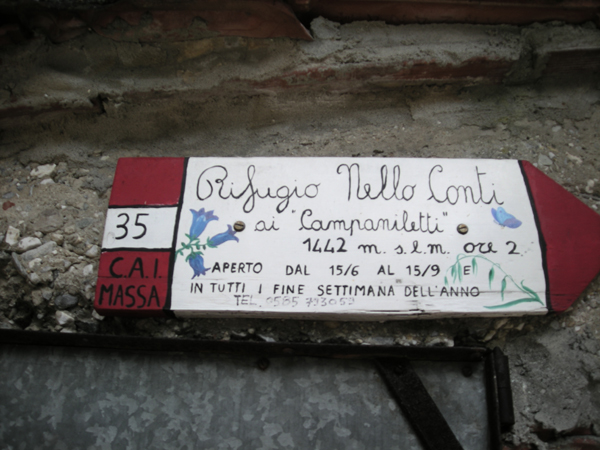 Rifugio Nello Conti
ai "Campaniletti"
1442 m. s.l.m. ore 2
APERTO DAL 15/6 AL 15/9 E
IN TUTTI I FINE SETTIMANA DELL'ANNO
TEL. 0585 793059
35
C.A.I.
MASSA